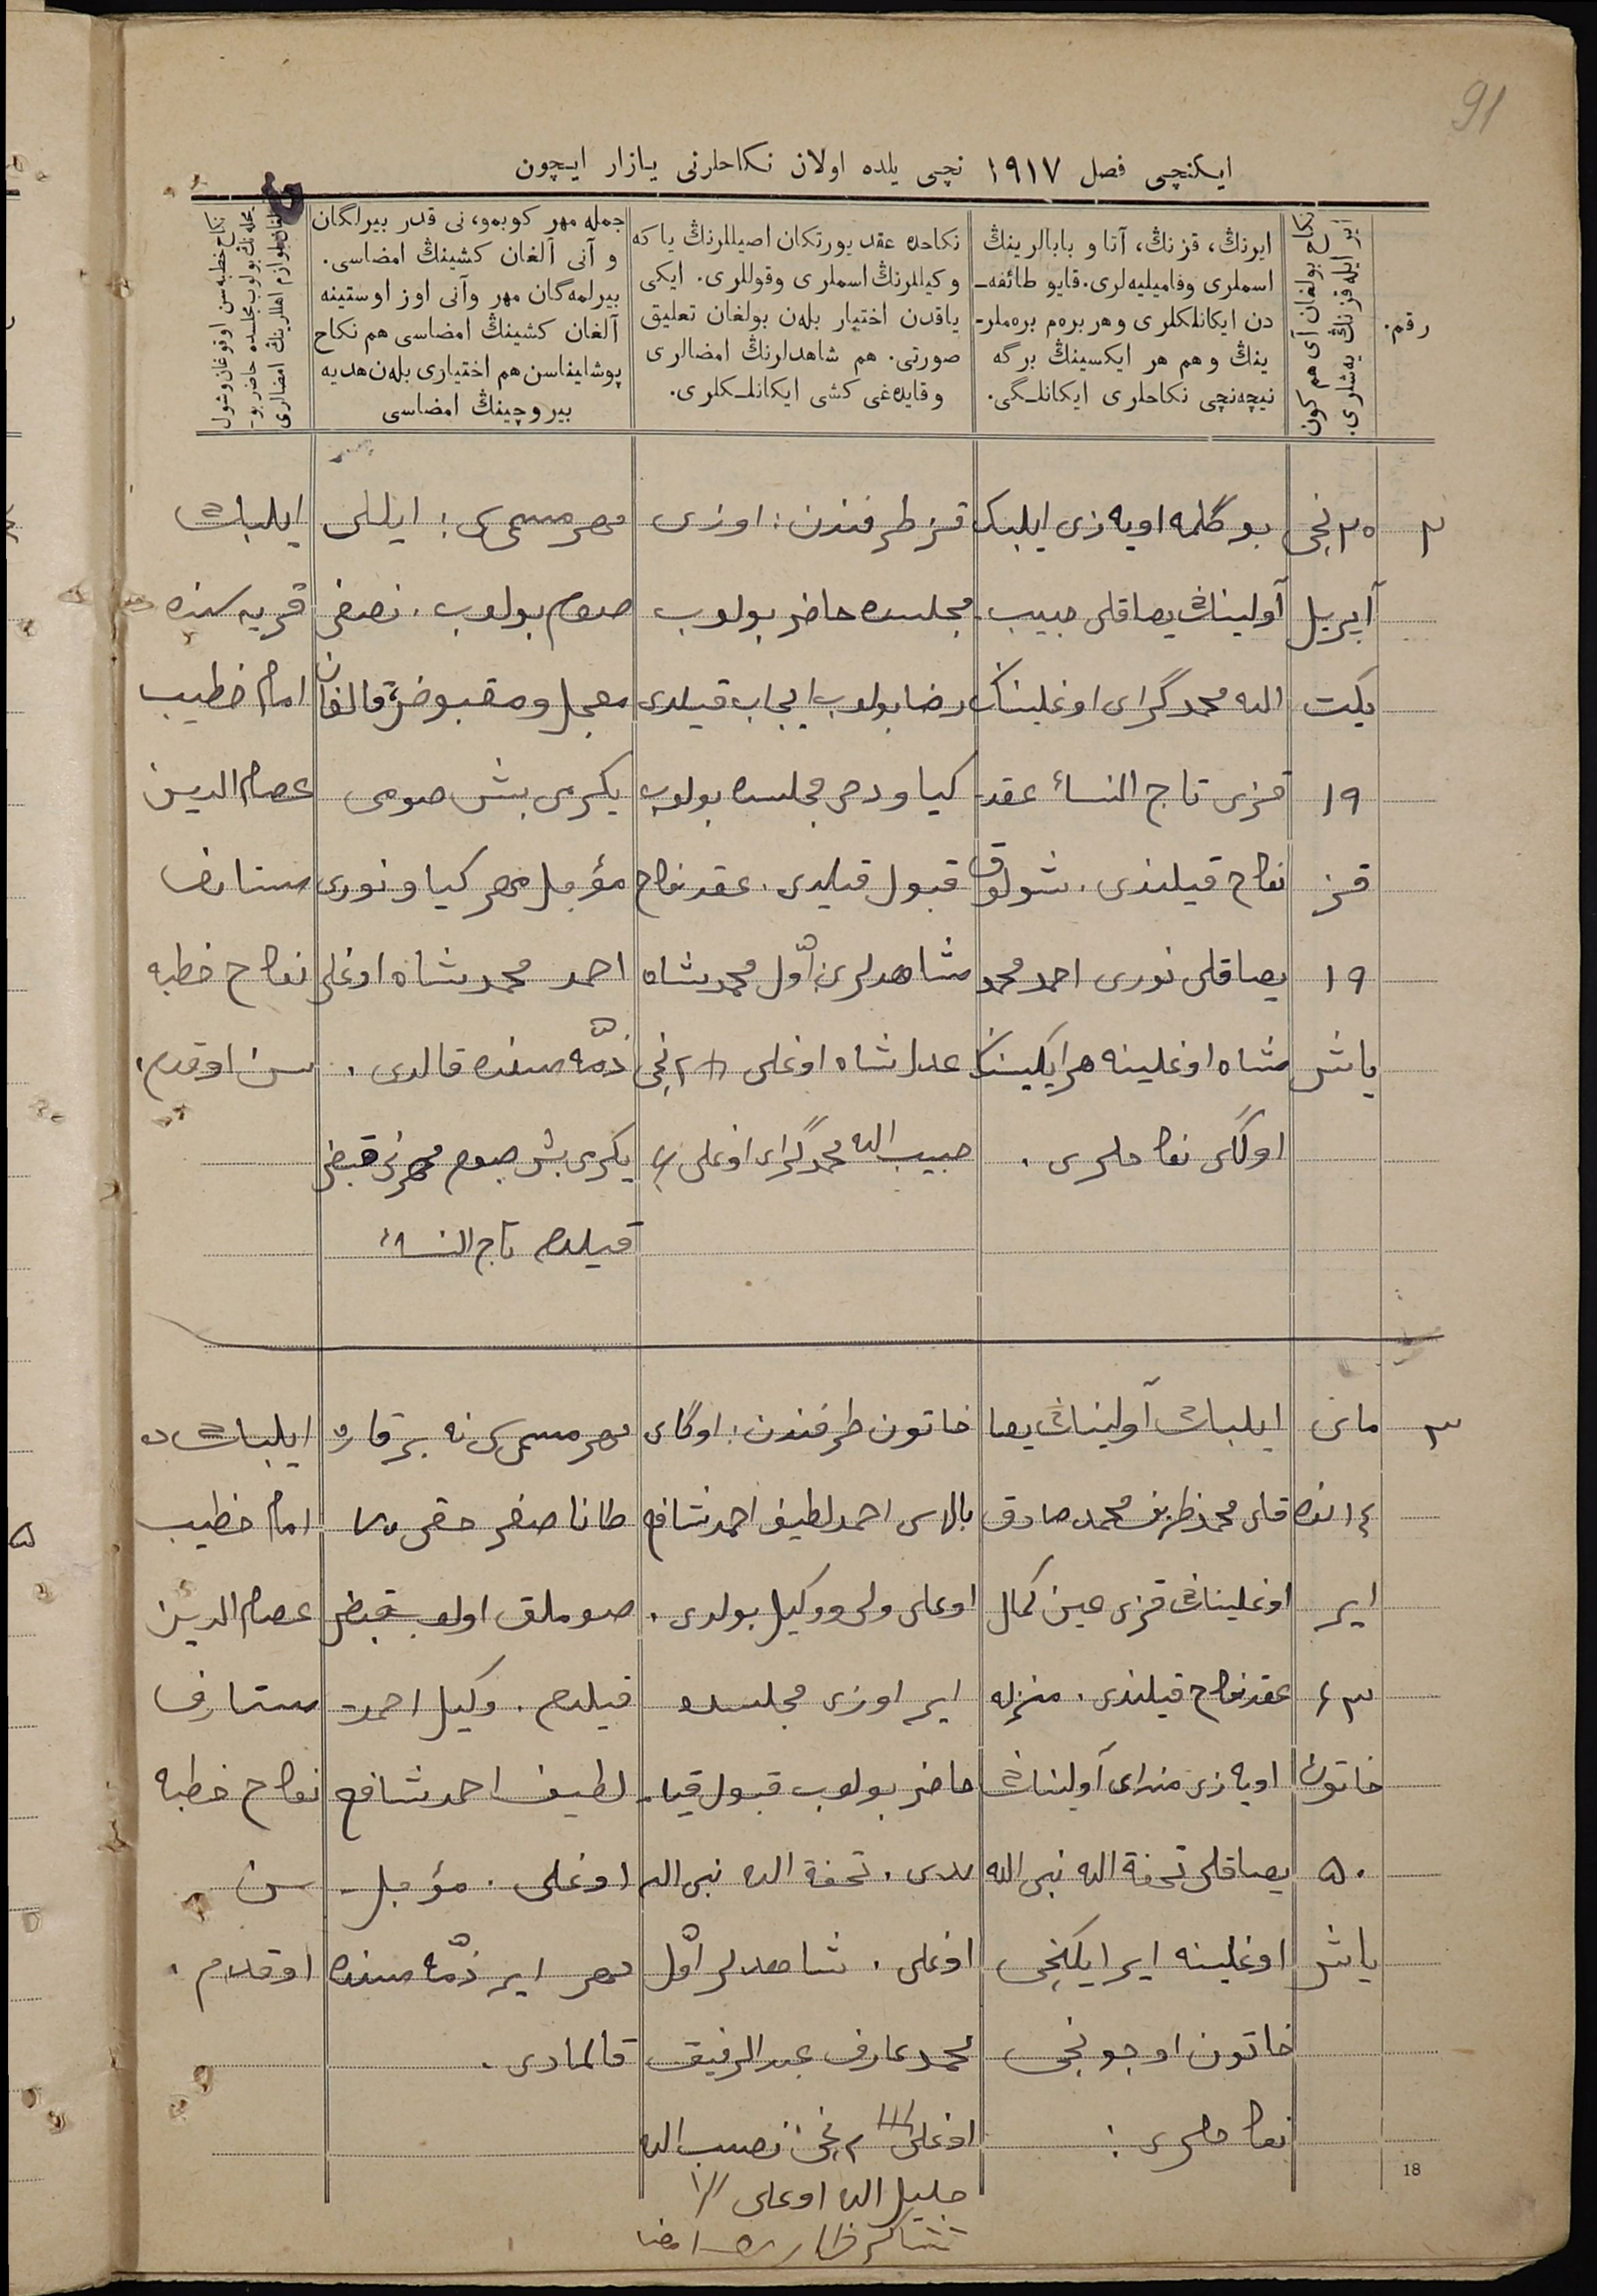 91
ایکنچی فصل ۱۹۱۷ نچی یلده اولان نکاحلرنی یازار ایچون
رقم.
نکاح بولغان آی هم کون
ایر ایله قزنڭ یه‌شلری.
ایرنڭ، قزنڭ، آتا و بابالرینڭ
اسملری وفامیلیه‌لری. قایو طائفه‌ـ
دن ایکانلکلری و هر بره‌م بره‌ملرـ
ینڭ و هم هر ایکسینڭ برگه
نیچه‌نچی نکاحلری ایکانلـگی.
نکاحده عقد یورتکان اصیللرنڭ یا که
وکیللرنڭ اسملری وقوللری. ایکی
یاقدن اختیار بله‌ن بولغان تعلیق
صورتی. هم شاهدلرنڭ امضالری
وقایده‌غی کشی ایکانلـکلری.
جمله مهر کوبمو، نی قدر بیرلگان
و آنی آلغان کشینڭ امضاسی.
بیرلمه‌گان مهر وآنی اوز اوستینه
آلغان کشینڭ امضاسی هم نکاح
پوشلیناسن هم اختیاری بله‌ن هدیه
بیروچینڭ امضاسی
نکاح خطبه‌سن اوقوغان وشول
محله‌نڭ بولوب مجلسده حاضر بوـ
لغان لوازم اهللرینڭ امضالری
۲
۲۵ نچی
آپریل
یکت
۱۹
قز
۱۹
یاش
بوگلمه اویه‌زی ایلبک
آولیناڭ یصاقلی حبیب
الله محمدگرای اوغلیناڭ
قزی تاج النساء عقد
نکاح قیلندی. شولوق
یصاقلی نوری احمد محمد
شاه اوغلینه هر ایکیسیناڭ
اولگی نکاحلری.
قز طرفندن: اوزی
مجلسده حاضر بولوب
رضا بولوب ایجاب قیلدی
کیاو دخی مجلسده بولوب
قبول قیلدی. عقد نکاح
شاهدلری: اوّل محمدشاه
عدلشاه اوغلی ۲نچی
حبیب الله محمدگرای اوغلی
مهر مسمی: ایللی
صوم بولوب. نصفی
معجل و مقبوض، قالغان
یکرمی بش صومی
مؤجل مهر کیاو نوری
احمد محمدشاه اوغلی
ذمّه‌سنده قالدی.
یکرمی بش صوم مهرنی قبض
قیلدم تاج النساء
ایلباڭ
قریه‌سنده
امام خطیب
عصام الدین
ستارف
نکاح خطبه
سن اوقدم.
۳
مای
۱۴نده
ایر
۶۳
خاتون
۵۰
یاش
ایلباڭ آولیناڭ یصا
قلی محمدظریف محمدصادق
اوغلیناڭ قزی عین کمال
عقد نکاح قیلندی. منزله
اویه‌زی آولیناڭ
یصاقلی تحفة الله نبی الله
اوغلینه ایر ایکنچی
خاتون اوچونچی
نکاحلری:
خاتون طرفندن: اوگای
بالاسی احمدلطیف احمدشافع
اوغلی ولی و وکیل بولدی.
ایر اوزی مجلسده
حاضر بولوب قبول قیـ
لدی. تحفة الله نبی الله
اوغلی. شاهدلر اوّل
محمد عارف عبدالرفیق
اوغلی ۲نچی نصیب الله
جلیل الله اوغلی
مهر مسمی نه بر قارت
طانا صفر حقی
صوملق اولوب قبض
قیلدم. وکیل احمدـ
لطیف احمدشافع
اوغلی. مؤجل
مهر ایر ذمّه‌سنده
قالمادی.
ایلباڭ ده
امام خطیب
عصام الدین
ستارف
نکاح خطبه
سن
اوقدم.
18